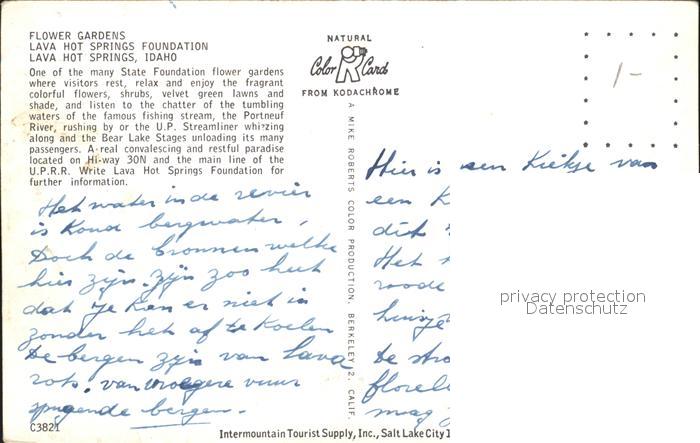 FLOWER GARDENS
LAVA HOT SPRINGS FOUNDATION
LAVA HOT SPRINGS, IDAHO
One of the many State Foundation flower gardens
where visitors rest, relax and enjoy the fragrant
colorful flowers, shrubs, velvet green lawns and
shade, and listen to the chatter of the tumbling
waters of the famous fishing stream, the Portneuf
River, rushing by or the U.P. Streamliner whizzing
along and the Bear Lake Stages unloading its many
passengers. A real convalescing and restful paradise
located on Hi-way 30N and the main line of the
U.P.R.R. Write Lava Hot Springs Foundation for
further information.
Het water in de revier
is Koud bergwater,
Doch de bronnen welke
hier zijn, zijn zoo heet
dat je kan er niet in
zonder het af te Koelen
De bergen zijn van Lava
rots. van vroegere vuur
spugende bergen.
C3821
NATURAL
Color Card
FROM KODACHROME
A MIKE ROBERTS COLOR PRODUCTION, BERKELEY 2, CALIF.
1-
Hier is een Kiekje van
een K
dit
Het
roode
huisje
De stro
mag
privacy protection
Datenschutz
Intermountain Tourist Supply, Inc., Salt Lake City 1